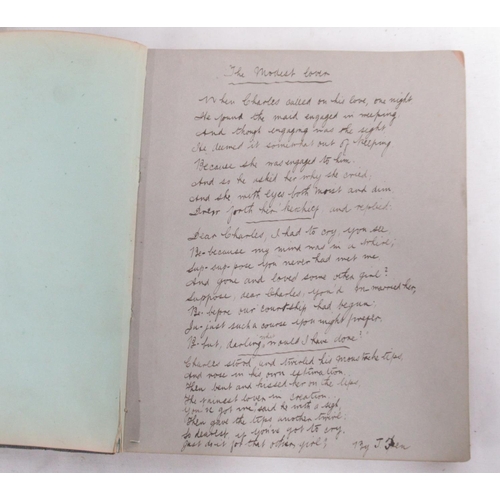 The Modest Lover
When Charles called on his love, one night
He found the maid engaged in weeping
And though engaging was the sight
He deemed it somewhat out of keeping
Because she was engaged to him.
And so he asked her why she cried,
And she with eyes both moist and dim
Drew forth her kerchief and replied:
Dear Charles, I had to cry, you see
Be-because my mind was in a whirl;
Sup-sup-suppose you never had met me
And gone and loved some other girl?
Suppose, dear Charles, you'd married her,
Be-before our courtship had begun
In-just such a course you might prefer,
B-but, darling, would I have done!
Charles stood, and twirled his moustache tips
And rose in his own estimation.
Then bent and kissed her on the lips,
The vainest lover in creation.
You've got me, said he with a sigh,
Then gave the tips another twirl.
So dearest, if you've got to cry
Just for that other girl! By J